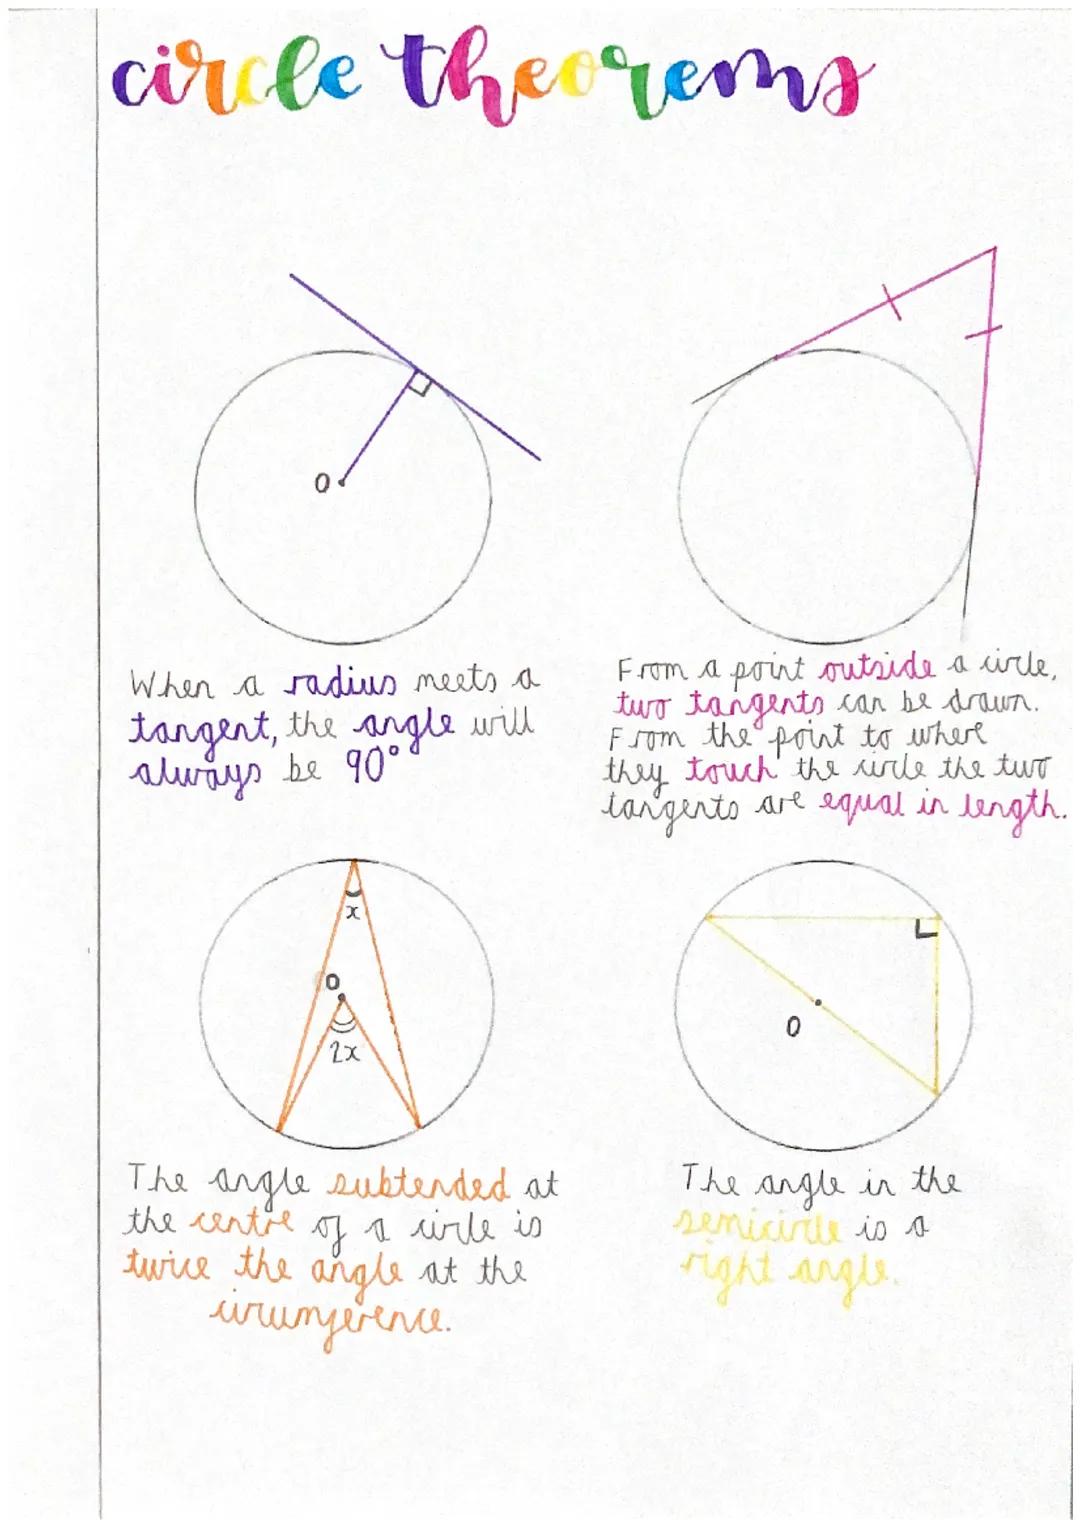 circle theorems
O
When a radius meets a
tangent, the angle will
always be 90°
From a point outside a circle,
two tangents can be drawn.
From the point to where
they touch the circle the two
tangents are equal in length.
x
O
2x
The angle subtended at
the centre of a circle is
twice the angle at the
circumference.
O
The angle in the
semicircle is a
right angle.